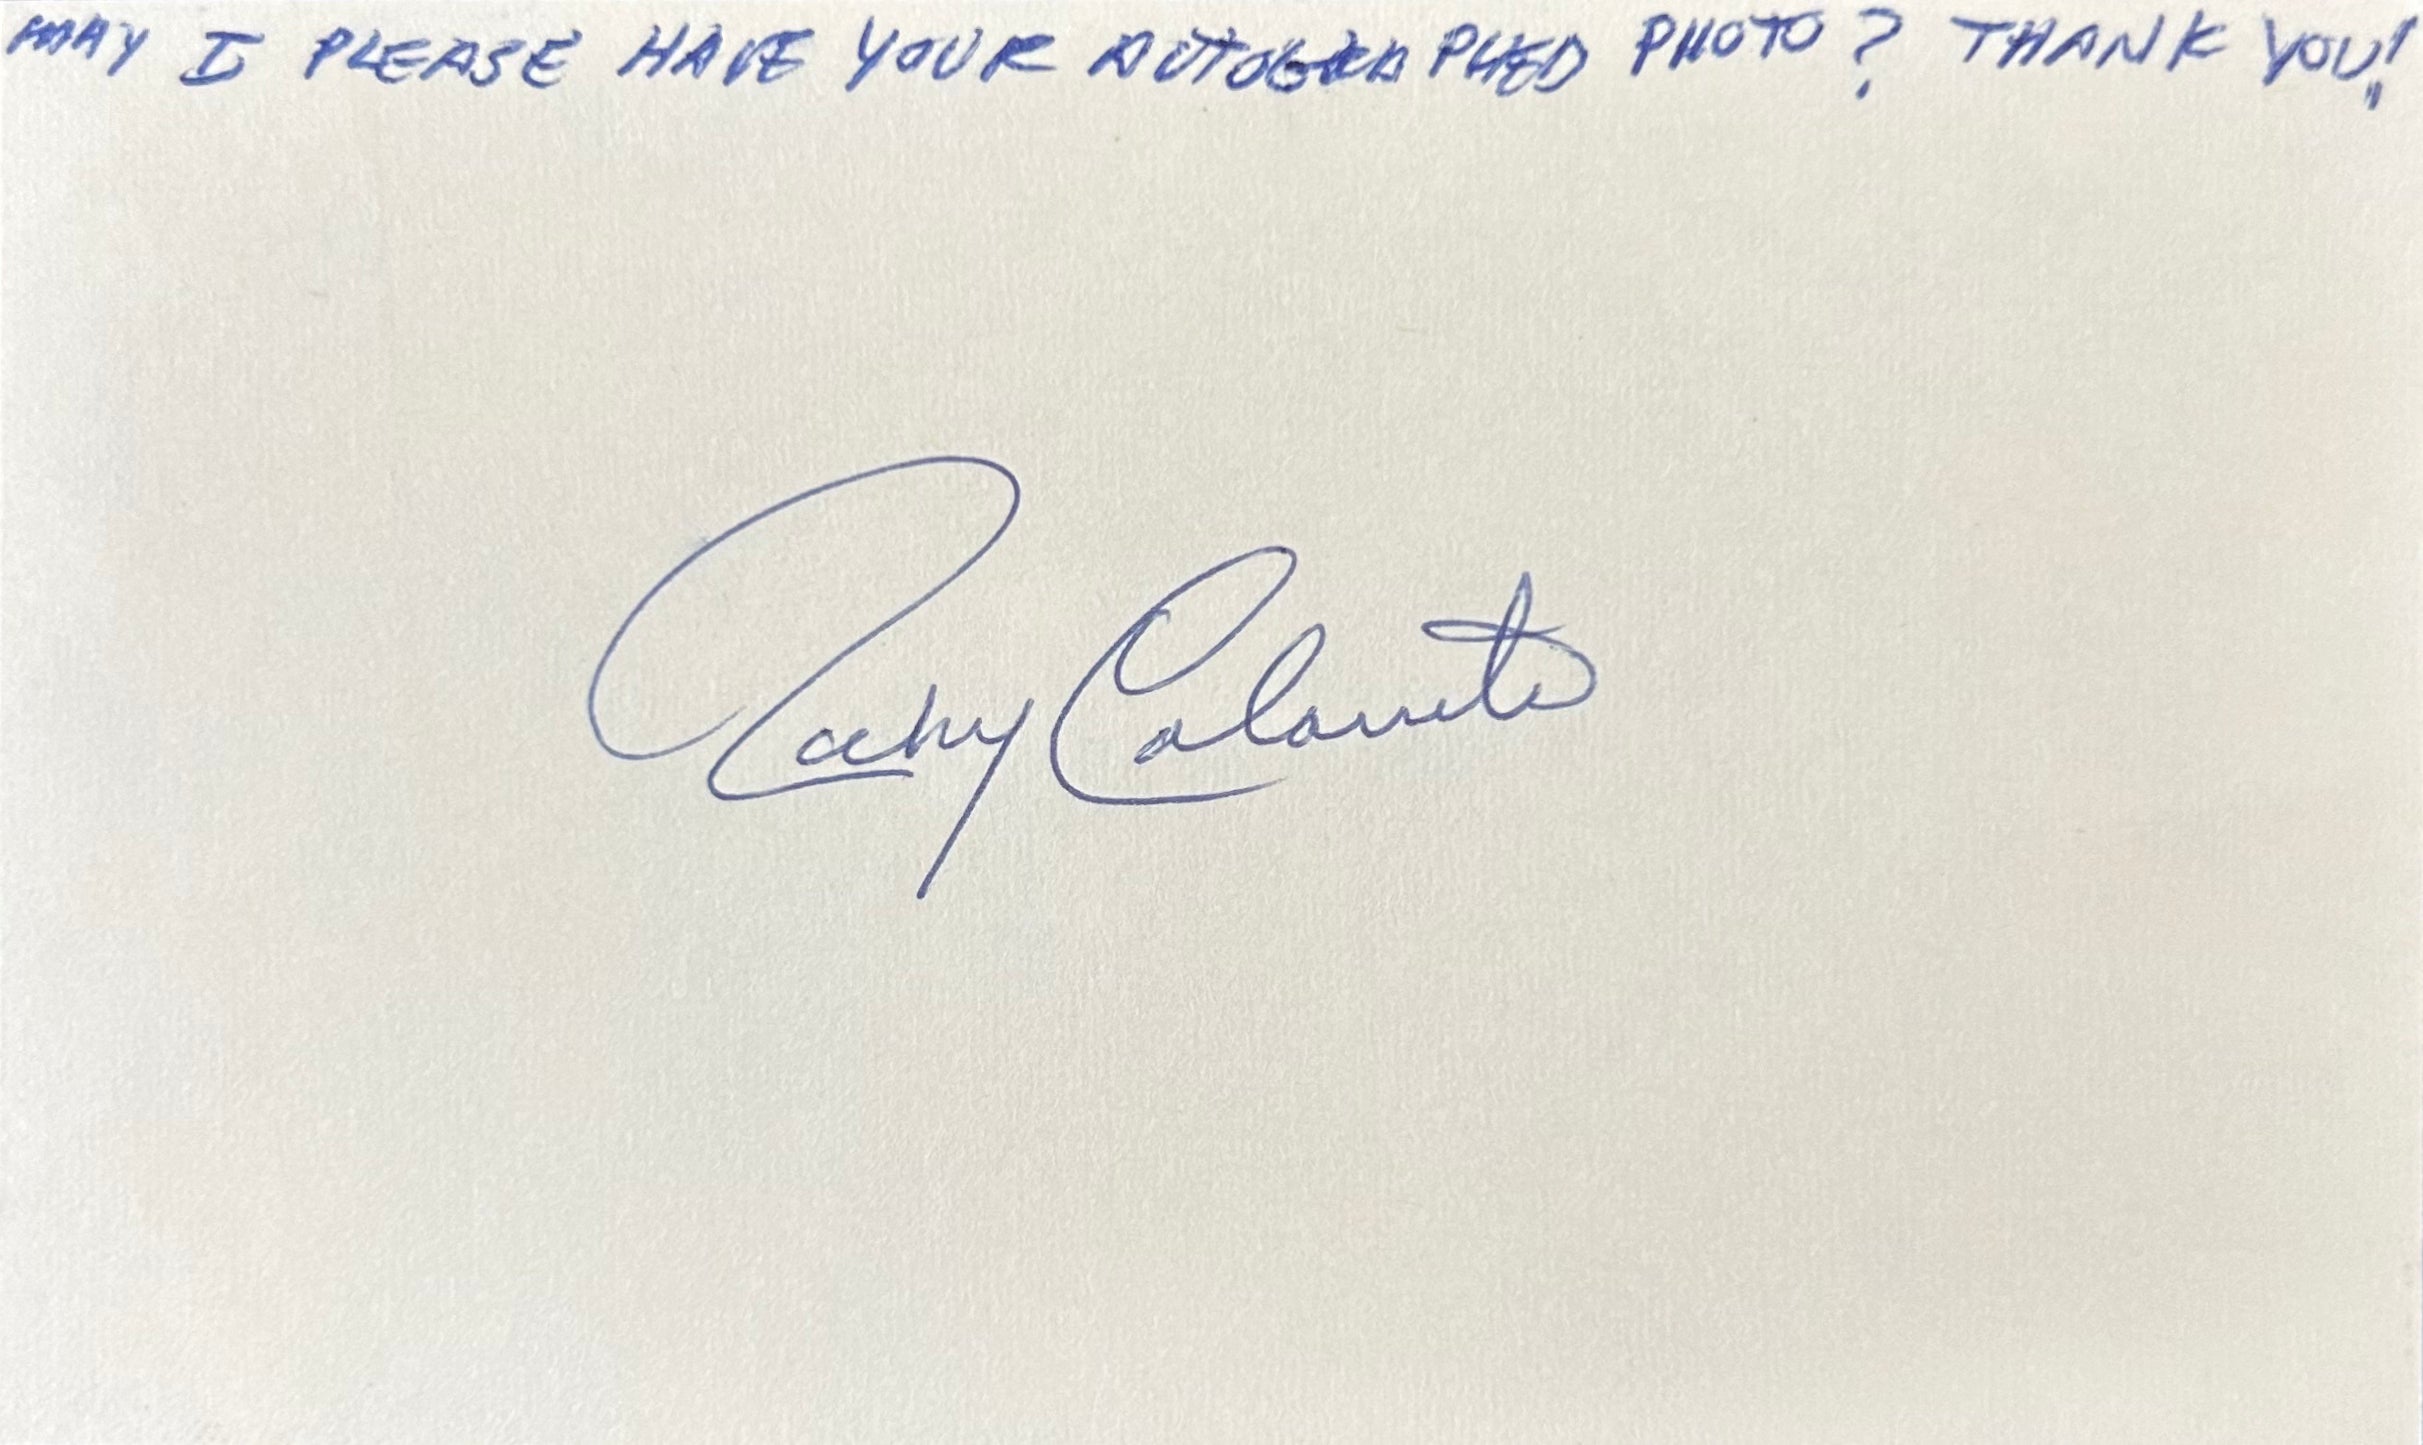 MAY I PLEASE HAVE YOUR AUTOGRAPHED PHOTO? THANK YOU!!
Rocky Colavito